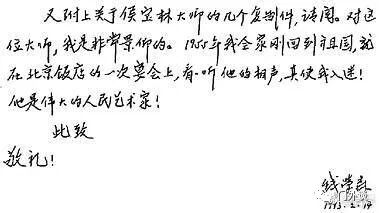 又附上关于侯宝林大师的几个复制件,请阅。对这
位大师,我是非常景仰的。1955年我全家刚回到祖国,就
在北京饭店的一次宴会上,看、听他的相声,真使我入迷!
他是伟大的人民艺术家!
此致
敬礼!
钱学森
1993.2.14